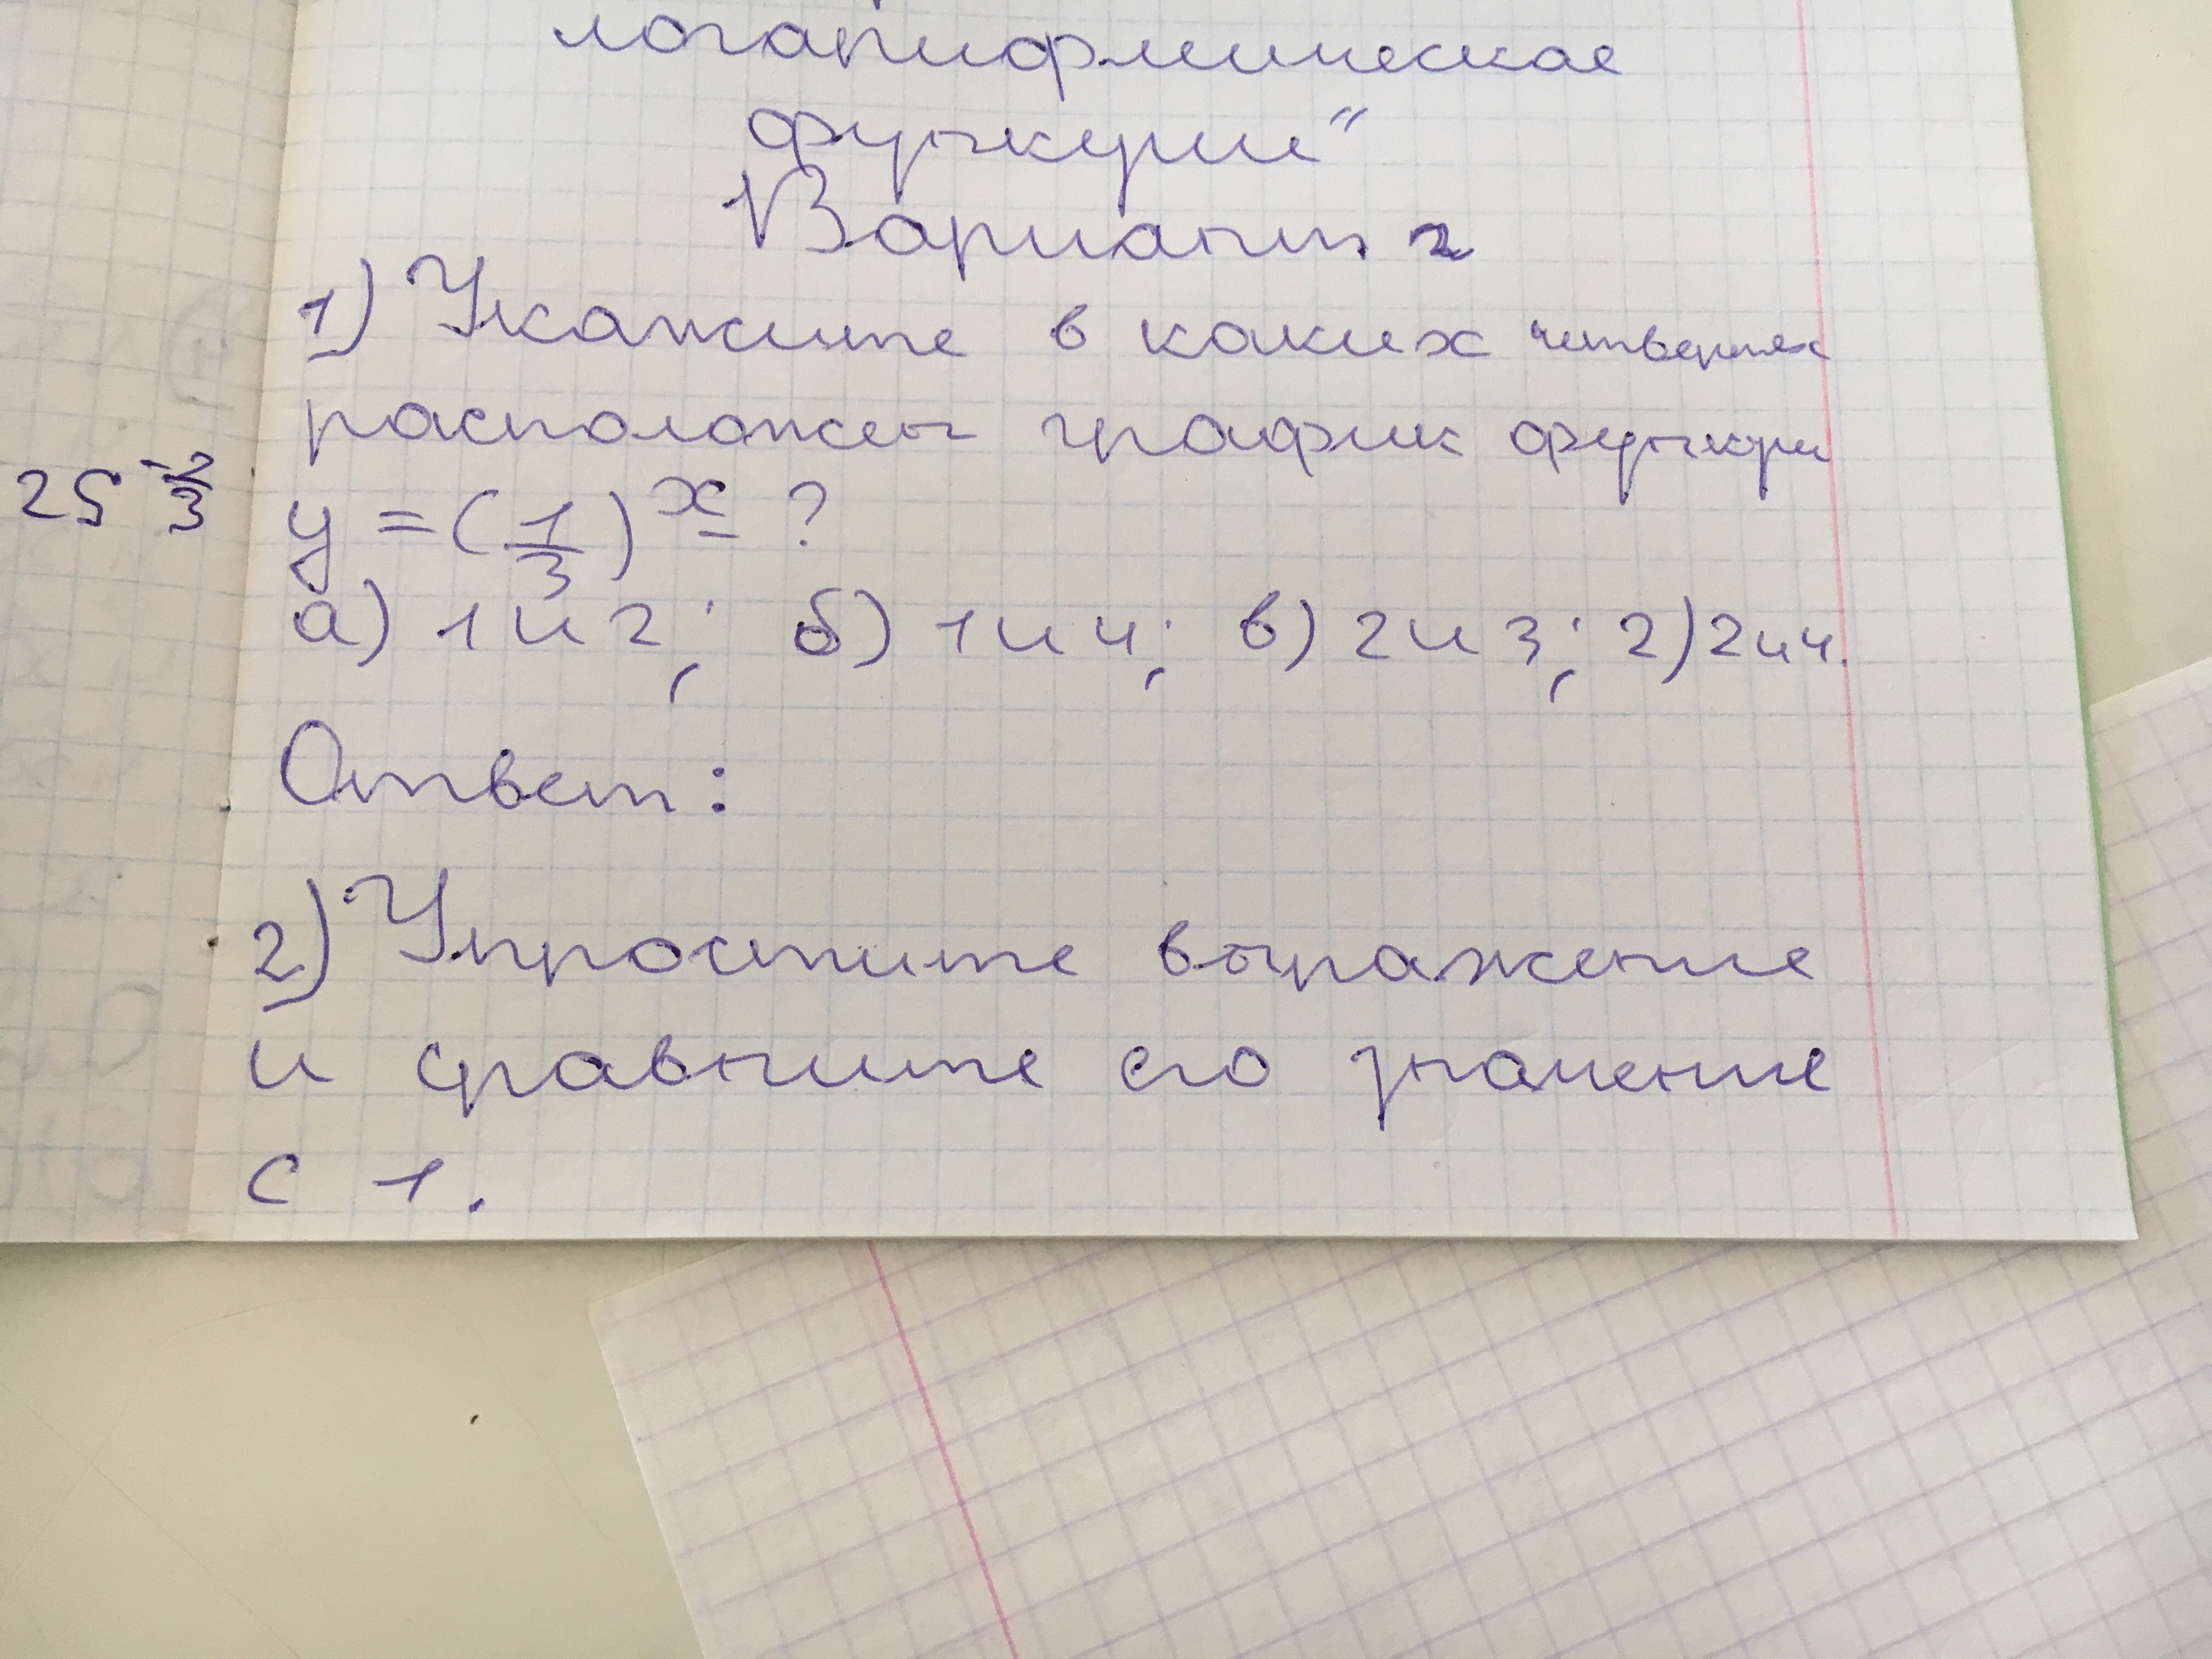 логарифмическая
функции"
Вариант 2
1) Укажите в каких четвертях
расположен график функци
y = (1/3)^x ?
а) 1 и 2; б) 1 и 4; в) 2 и 3; г) 2 и 4.
Ответ:
2) Упростите выражение
и сравните его значение
с 1.
25 -2/3